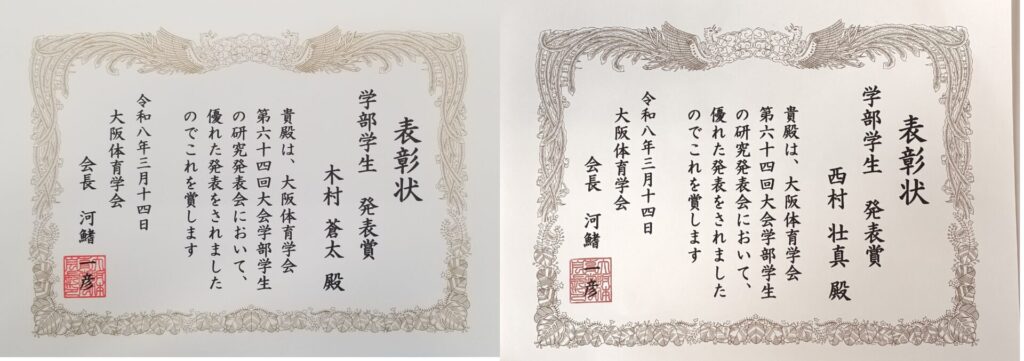 表彰状
学部学生 発表賞
木村 蒼太 殿
貴殿は、大阪体育学会
第六十四回大会学部学生
の研究発表会において、
優れた発表をされました
のでこれを賞します
令和八年三月十四日
大阪体育学会
会長 河鰭 一彦
表彰状
学部学生 発表賞
西村 壮真 殿
貴殿は、大阪体育学会
第六十四回大会学部学生
の研究発表会において、
優れた発表をされました
のでこれを賞します
令和八年三月十四日
大阪体育学会
会長 河鰭 一彦